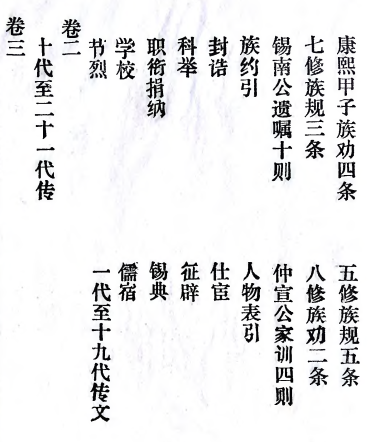 康熙甲子族劝四条
五修族规五条
七修族规三条
八修族劝二条
锡南公遗嘱十则
仲宣公家训四则
族约引
人物表引
封诰
仕宦
科举
征辟
职衔捐纳
锡典
学校
儒宿
书烈
一代至十九代传文
卷二
十代至二十一代传
卷三